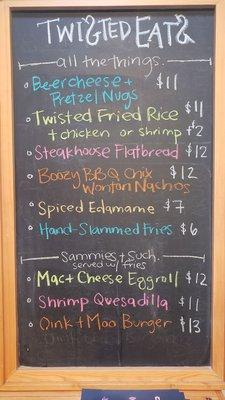 TWISTED EATS
all the things.
Beercheese + $11
Pretzel Nugs
Twisted Fried Rice $11
+ chicken or shrimp +$2
Steakhouse Flatbread $12
Boozy BBQ Chix $12
Wonton Nachos
Spiced Edamame $7
Hand-Slammed Fries $6
Sammies + Such.
served w/ fries
Mac + Cheese Eggroll $12
Shrimp Quesadilla $11
Oink + Moo Burger $13